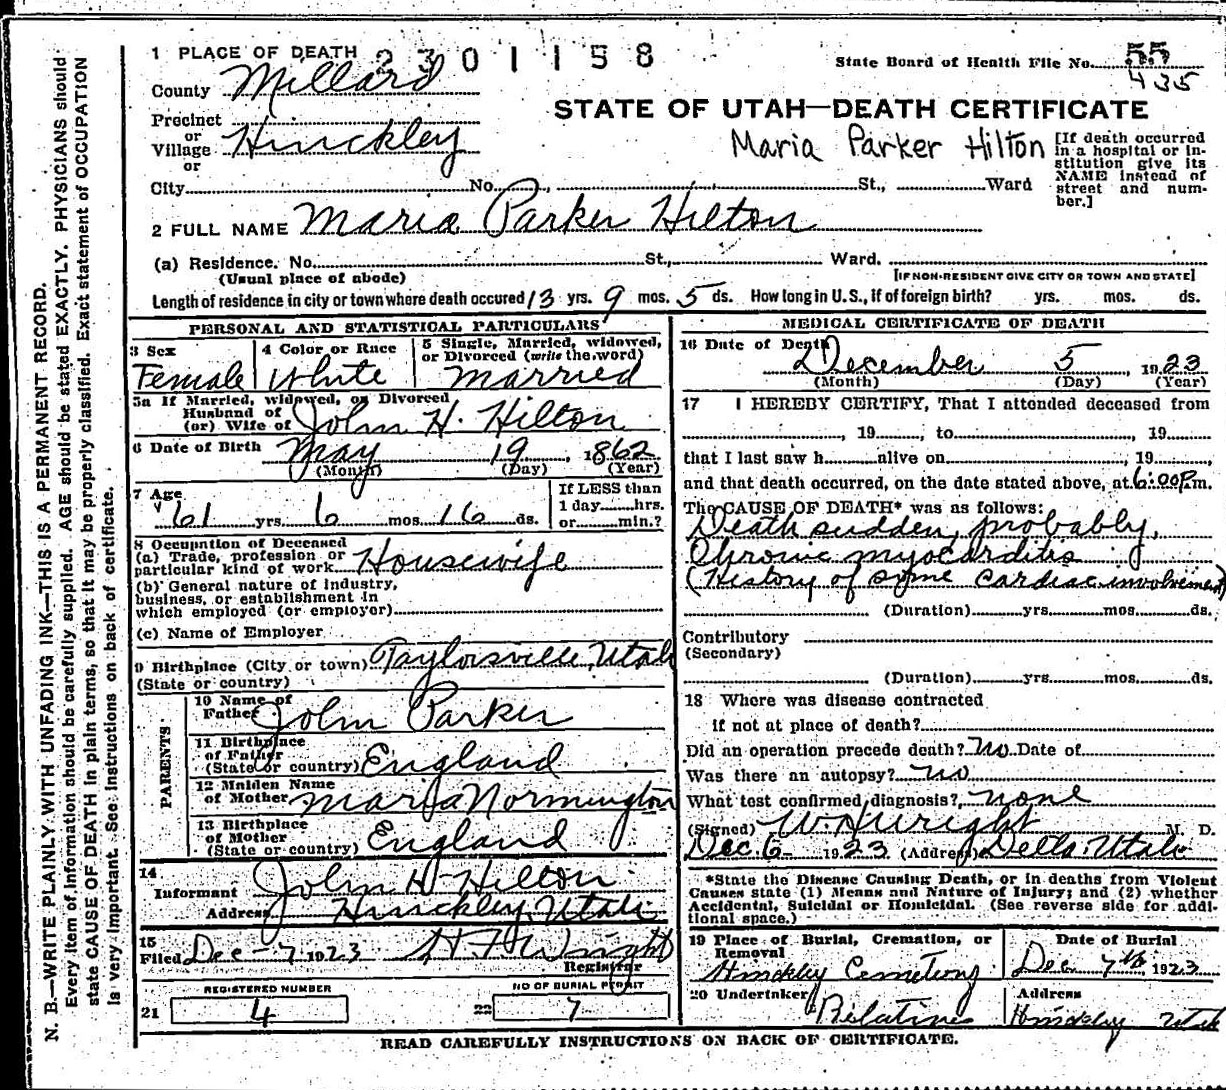 1 PLACE OF DEATH 2301158
State Board of Health File No. 55
435
County Millard
STATE OF UTAH—DEATH CERTIFICATE
Precinct
or
Village Hinckley
or
Maria Parker Hilton
[If death occurred in a hospital or institution give its NAME instead of street and number.]
City No. , St., Ward
2 FULL NAME Maria Parker Hilton
(a) Residence. No. St., Ward.
(Usual place of abode) [IF NON-RESIDENT GIVE CITY OR TOWN AND STATE]
Length of residence in city or town where death occured 13 yrs. 9 mos. 5 ds. How long in U.S., if of foreign birth? yrs. mos. ds.
PERSONAL AND STATISTICAL PARTICULARS
3 Sex
Female
4 Color or Race
White
5 Single, Married, widowed,
or Divorced (write the word)
Married
5a If Married, widowed, or Divorced
Husband of
(or) Wife of John H. Hilton
6 Date of Birth May 19, 1862
(Month) (Day) (Year)
7 Age
61 yrs. 6 mos. 16 ds.
If LESS than
1 day hrs.
or min.?
8 Occupation of Deceased
(a) Trade, profession or
particular kind of work Housewife
(b) General nature of Industry,
business, or establishment in
which employed (or employer)
(c) Name of Employer
9 Birthplace (City or town) Taylorsville, Utah
(State or country)
PARENTS
10 Name of
Father John Parker
11 Birthplace
of Father
(State or country) England
12 Maiden Name
of Mother Maria Normington
13 Birthplace
of Mother
(State or country) England
14
Informant John H Hilton
Address Hinckley, Utah
15
Filed Dec - 7 1923 Wright
Registrar
REGISTERED NUMBER
21 4
NO OF BURIAL PERMIT
22 7
MEDICAL CERTIFICATE OF DEATH
16 Date of Death
December 5 1923
(Month) (Day) (Year)
17 I HEREBY CERTIFY, That I attended deceased from
, 19 , to , 19
that I last saw h alive on , 19 ,
and that death occurred, on the date stated above, at 6:00 P.m.
The CAUSE OF DEATH* was as follows:
Death sudden, probably,
Chronic myocarditis
(History of some cardiac involvement)
(Duration) yrs. mos. ds.
Contributory
(Secondary)
(Duration) yrs. mos. ds.
18 Where was disease contracted
if not at place of death?
Did an operation precede death? No Date of
Was there an autopsy? no
What test confirmed diagnosis? none
(Signed) Wright M. D.
Dec. 6 1923 (Address) Delta Utah
*State the Disease Causing Death, or in deaths from Violent
Causes state (1) Means and Nature of Injury; and (2) whether
Accidental, Suicidal or Homicidal. (See reverse side for addi-
tional space.)
19 Place of Burial, Cremation, or
Removal
Hinckley Cemetery
Date of Burial
Dec. 7th 1923
20 Undertaker
Relatives
Address
Hinckley Utah
READ CAREFULLY INSTRUCTIONS ON BACK OF CERTIFICATE.
N. B.—WRITE PLAINLY WITH UNFADING INK—THIS IS A PERMANENT RECORD.
Every item of information should be carefully supplied. AGE should be stated EXACTLY. PHYSICIANS should
state CAUSE OF DEATH in plain terms, so that it may be properly classified. Exact statement of OCCUPATION
is very important. See instructions on back of certificate.